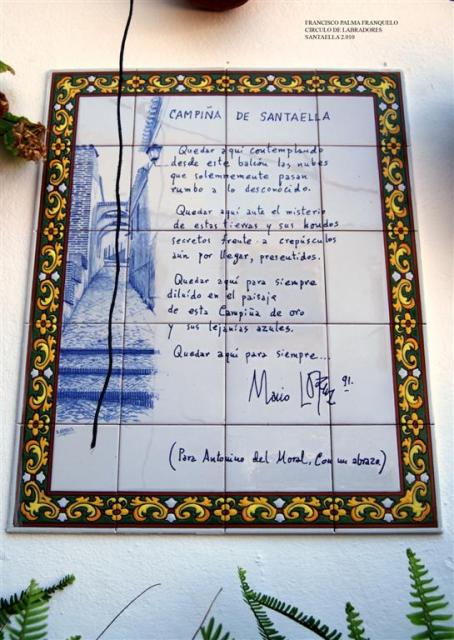 FRANCISCO PALMA FRANQUELO
CIRCULO DE LABRADORES
SANTAELLA 2.010
CAMPIÑA DE SANTAELLA
Quedar aquí contemplando
desde este balcón las nubes
que solemnemente pasan
rumbo a lo desconocido.
Quedar aquí ante el misterio
de estas tierras y sus hondos
secretos frente a crepúsculos
aún por llegar, presentidos.
Quedar aquí para siempre
diluído en el paisaje
de esta Campiña de oro
y sus lejanías azules.
Quedar aquí para siempre...
Mario López 91.
(Para Antonino del Moral, Con un abrazo)